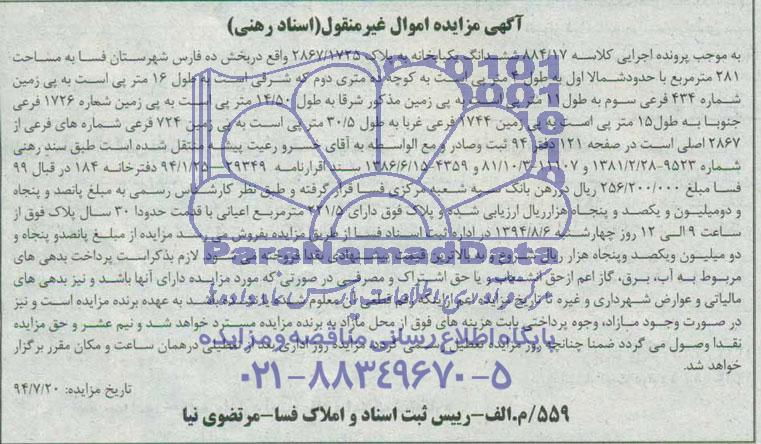 آگهی مزایده اموال غیرمنقول(اسناد رهنی)
به موجب پرونده اجرایی کلاسه ۸۸۴/۱۷ ششدانگ یکبابخانه به پلاک ۲۸۶۷/۱۷۲۵ واقع دربخش ده فارس شهرستان فسا به مساحت
۲۸۱ مترمربع با حدودشمالا اول به طول ۴ متر پی است به کوچه ده متری دوم که شرقی است به طول ۱۶ متر پی است به پی زمین
شماره ۴۳۴ فرعی سوم به طول۱۱ متر پی است به پی زمین مذکور شرقا به طول ۱۴/۵۰ متر پی است به پی زمین شماره ۱۷۲۶ فرعی
جنوبا به طول۱۵ متر پی است به پی زمین ۱۷۴۴ فرعی غربا به طول ۳۰/۵ متر پی است به پی زمین ۷۲۴ فرعی شماره های فرعی از
۲۸۶۷ اصلی است در صفحه ۱۲۱ دفتر ۹۴ ثبت وصادر و مع الواسطه به آقای خسرو رعیت پیشه منتقل شده است طبق سند رهنی
شماره ۹۵۲۳-۱۳۸۱/۲/۲۸ و ۱۱۱۰۷-۸۱/۱۰/۳ و ۴۳۵۹-۱۳۸۶/۶/۱۵ سند اقرارنامه ۲۹۳۴۹-۹۴/۱/۲۵ دفترخانه ۱۸۴ در قبال ۹۹
فسا مبلغ ۲۵۶/۲۰۰/۰۰۰ ریال دررهن بانک سپه شعبه مرکزی فسا قرار گرفته و طبق نظر کارشناس رسمی به مبلغ پانصد و پنجاه
و دومیلیون و یکصد و پنجاه هزارریال ارزیابی شده و پلاک فوق دارای ۲۲۱/۵ مترمربع اعیانی با قدمت حدودا ۳۰ سال پلاک فوق از
ساعت ۹ الی ۱۲ روز چهارشنبه ۱۳۹۴/۸/۶ در اداره ثبت اسناد فسا از طریق مزایده بفروش می رسد مزایده از مبلغ پانصدو پنجاه و
دو میلیون ویکصد وپنجاه هزار ریال شروع و به بالاترین قیمت پیشنهادی نقدا فروخته می شود. لازم بذکراست پرداخت بدهی های
مربوط به آب، برق، گاز اعم ازحق انشعاب و یا حق اشتراک و مصرف در صورتی که مورد مزایده دارای آنها باشد و نیز بدهی های
مالیاتی و عوارض شهرداری و غیره تا تاریخ مزایده اعم از اینکه رقم قطعی آن معلوم شده یا نشده باشد به عهده برنده مزایده است و نیز
در صورت وجود مازاد، وجوه پرداختی بابت هزینه های فوق از محل مازاد به برنده مزایده مسترد خواهد شد و نیم عشر و حق مزایده
نقدا وصول می گردد ضمنا چنانچه روز مزایده تعطیل رسمی گردد مزایده روز اداری بعد از تعطیلی درهمان ساعت و مکان مقرر برگزار
خواهد شد.
تاریخ مزایده: ۹۴/۷/۲۰
۵۵۹/م.الف-رییس ثبت اسناد و املاک فسا-مرتضوی نیا
ParsNamadData
پایگاه اطلاع رسانی مناقصه و مزایده
۰۲۱-۸۸۳۴۹۶۷۰-۵